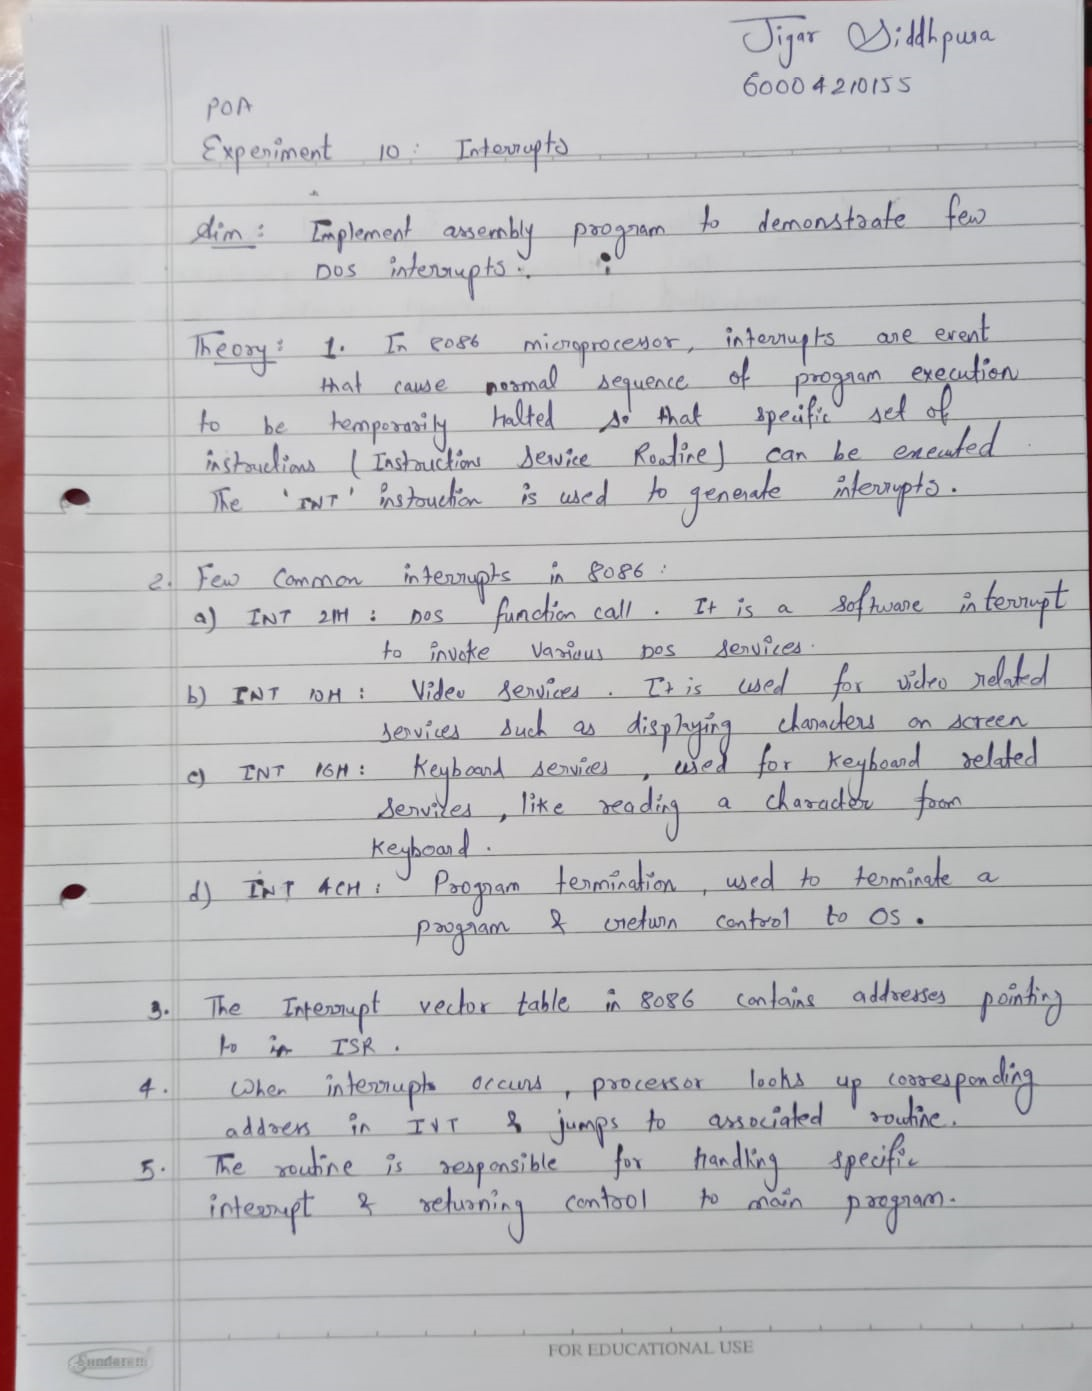 Jigar Siddhpura
60004210155
POA
Experiment 10: Interrupts
Aim: Implement assembly program to demonstrate few
DOS interrupts.
Theory: 1. In 8086 microprocessor, interrupts are event
that cause normal sequence of program execution
to be temporarily halted so that specific set of
instructions (Instructions Service Routine) can be executed
The 'INT' instruction is used to generate interrupts.
2. Few common interrupts in 8086:
a) INT 21H: DOS function call. It is a software interrupt
to invoke various DOS services.
b) INT 10H: Video services. It is used for video related
services such as displaying characters on screen
c) INT 16H: Keyboard services, used for keyboard related
services, like reading a character from
keyboard.
d) INT 4CH: Program termination, used to terminate a
program & return control to OS.
3. The Interrupt vector table in 8086 contains addresses pointing
to in ISR.
4. When interrupts occurs, processor looks up corresponding
address in IVT & jumps to associated routine.
5. The routine is responsible for handling specific
interrupt & returning control to main program.
Sundaram
FOR EDUCATIONAL USE